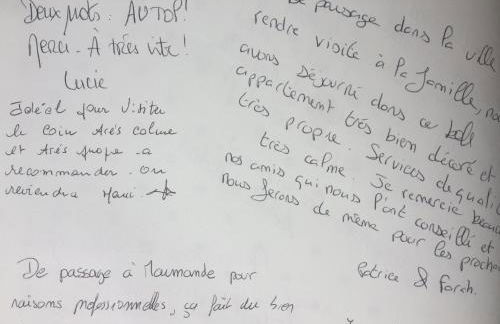 Deux mots : AU TOP!
Merci. À très vite!
Lucie
Idéal pour visiter
le coin très calme
et très propre. a
recommander. on
reviendra Merci
De passage dans la ville
rendre visite à la famille, nou
avons séjourné dans ce bel
appartement très bien décoré et
très propre. Services de qualit
très calme. Je remercie beauc
nos amis qui nous l'ont conseillé et
nous ferons de même pour les procha
Patrice & Farah.
De passage à Marmande pour
raisons professionnelles, ça fait du bien